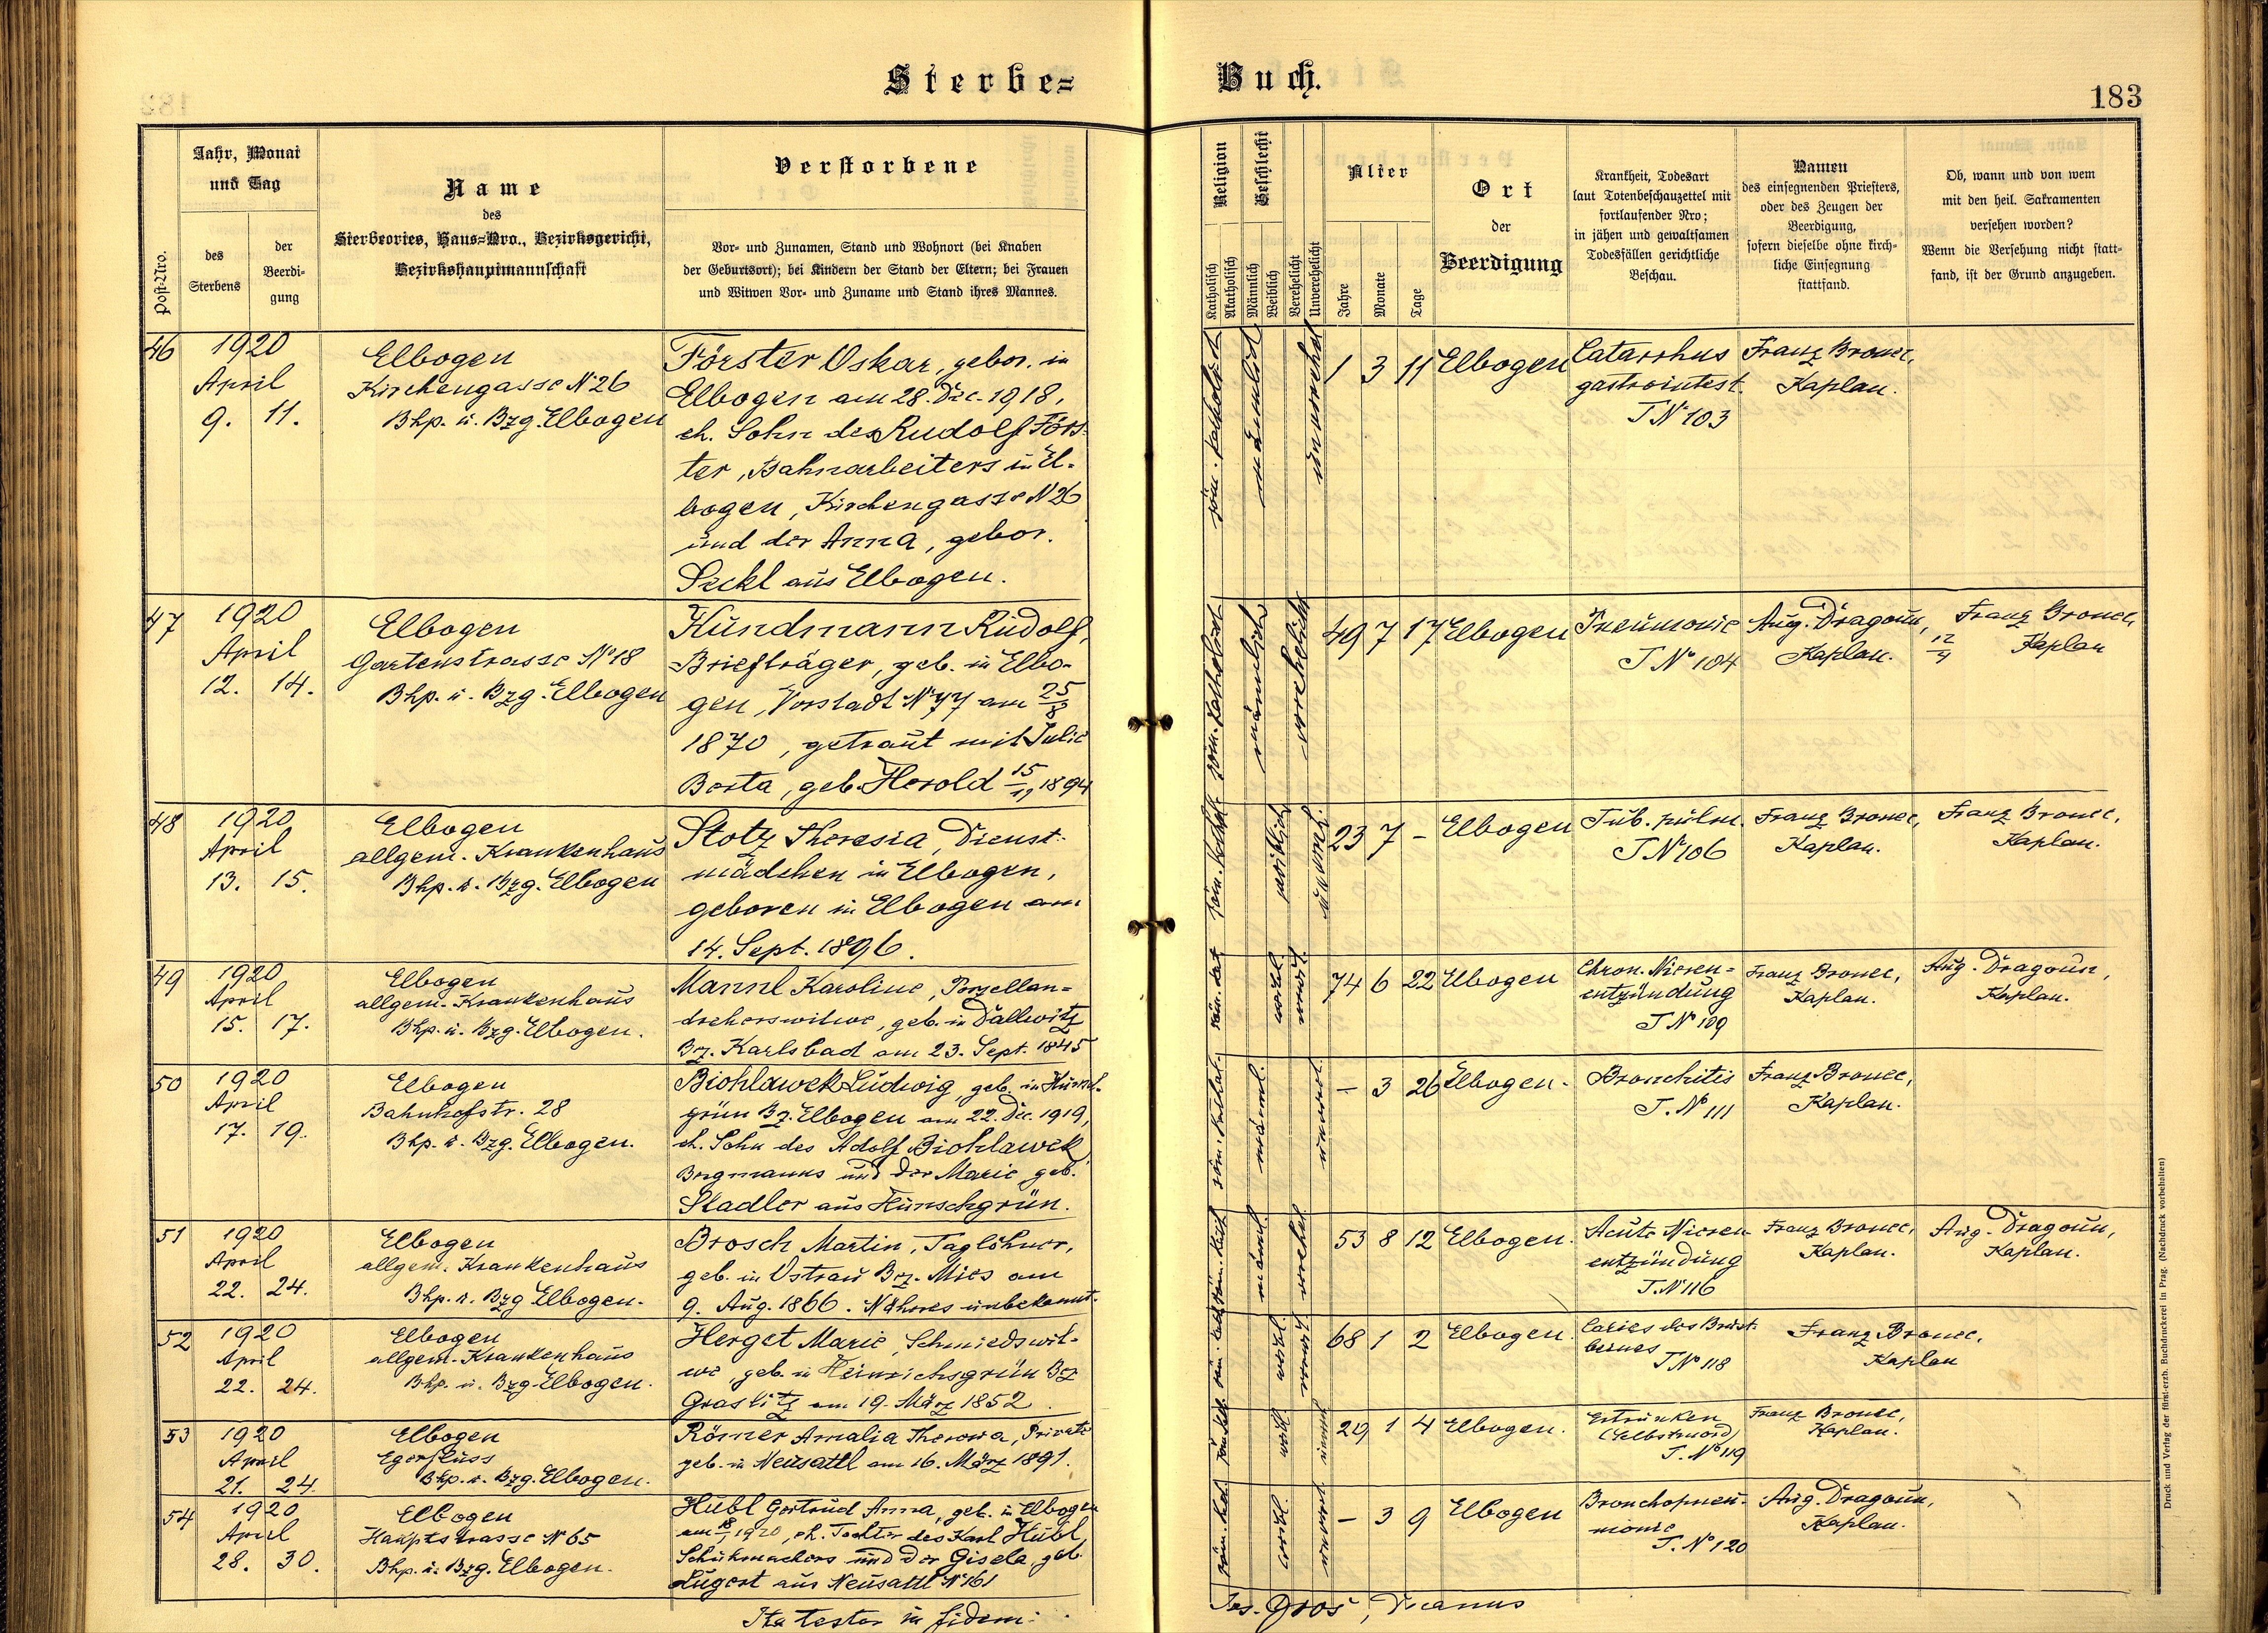 Sterbe=
Buch.
183
Post-Nro.
Jahr, Monat
und Tag
des
Sterbens
der
Beerdi-
gung
Name
des
Sterbeortes, Haus=Nro., Bezirksgericht,
Bezirkshauptmannschaft
Verstorbene
Vor- und Zunamen, Stand und Wohnort (bei Knaben
der Geburtsort); bei Kindern der Stand der Eltern; bei Frauen
und Witwen Vor- und Zuname und Stand ihres Mannes.
Religion
Katholisch
Akatholisch
Geschlecht
Männlich
Weiblich
Verehelicht
Unverehelicht
Alter
Jahre
Monate
Tage
Ort
der
Beerdigung
Krankheit, Todesart
laut Totenbeschauzettel mit
fortlaufender Nro;
in jähen und gewaltsamen
Todesfällen gerichtliche
Beschau.
Namen
des einsegnenden Priesters,
oder des Zeugen der
Beerdigung,
sofern dieselbe ohne kirch-
liche Einsegnung
stattfand.
Ob, wann und von wem
mit den heil. Sakramenten
versehen worden?
Wenn die Versehung nicht statt-
fand, ist der Grund anzugeben.
46
1920
April
9. 11.
Elbogen
Kirchengasse N° 26
Bhp. u. Bzg. Elbogen
Förster Oskar, gebor. in
Elbogen am 28. Dec. 1918,
eh. Sohn des Rudolf Förs-
ter, Bahnarbeiters in El-
bogen, Kirchengasse N 26
und der Anna, gebor.
Seckl aus Elbogen.
röm. katholisch
männlich
unverehel
1 3 11 Elbogen
Catarrhus
gastrointest.
T N° 103
Franz Bronec,
Kaplan.
47
1920
April
12. 14.
Elbogen
Gartenstrasse N° 18
Bhp. u. Bzg. Elbogen
Hundmann Rudolf,
Briefträger, geb. in Elbo-
gen, Vorstadt N° 77 am 25/8
1870, getraut mit Julie
Berta, geb. Herold 15/11 1894
röm. katholisch
männlich
verehelicht
49 7 17 Elbogen
Pneumonie
T N° 104
Aug. Dragoun,
Kaplan.
12/4
Franz Bronec,
Kaplan
48
1920
April
13. 15.
Elbogen
allgem. Krankenhaus
Bhp. u. Bzg. Elbogen
Stotz Theresia, Dienst-
mädchen in Elbogen,
geboren in Elbogen am
14. Sept. 1896.
röm. kathol.
weiblich
unverehel.
23 7 - Elbogen
Tub. pulm.
T N° 106
Franz Bronec,
Kaplan.
Franz Bronec,
Kaplan.
49
1920
April
15. 17.
Elbogen
allgem. Krankenhaus
Bhp. u. Bzg. Elbogen.
Mannl Karoline, Porzellan=
dreherswitwe, geb. in Dallwitz
Bz. Karlsbad am 23. Sept. 1845
röm. kat
weibl.
verwit
74 6 22 Elbogen
Chron. Nieren=
entzündung
T N° 109
Franz Bronec,
Kaplan.
Aug. Dragoun,
Kaplan.
50
1920
April
17. 19.
Elbogen
Bahnhofstr. 28
Bhp. u. Bzg. Elbogen.
Biohlawek Ludwig, geb. in
grün Bz. Elbogen am 22. Dec. 1919,
eh. Sohn des Adolf Biohlawek
Bergmanns und der Marie geb.
Stadler aus Hunschgrün.
röm. kathol.
männl.
unverel.
- 3 26 Elbogen.
Bronchitis
T. N° 111
Franz Bronec,
Kaplan.
51
1920
April
22. 24.
Elbogen
allgem. Krankenhaus
Bhp. u. Bzg Elbogen.
Brosch Martin, Taglöhner,
geb. in Ostrau Bz. Mies am
9. Aug. 1866. Näheres unbekannt.
röm. kath
männl.
verehel
53 8 12 Elbogen.
Acute Nieren
entzündung
T. N° 116
Franz Bronec,
Kaplan.
Aug. Dragoun,
Kaplan.
52
1920
April
22. 24.
Elbogen
allgem. Krankenhaus
Bhp. u. Bzg. Elbogen.
Herget Marie, Schmiedswit-
we, geb. in Heinrichsgrün Bz
Graslitz am 19. März 1852.
weibl.
verwit
68 1 2 Elbogen.
Caries des Brust-
beines
T N° 118
Franz Bronec,
Kaplan
53
1920
April
21. 24.
Elbogen
Egerfluss
Bhp. u. Bzg. Elbogen.
Römer Amalia Theresia, Private
geb. in Neusattl am 16. März 1891.
röm. kat
weibl
29 1 4 Elbogen.
Ertrunken
(Selbstmord)
T. N° 119
Franz Bronec,
Kaplan.
54
1920
April
28. 30.
Elbogen
Hauptstrasse N° 65
Bhp. u. Bzg. Elbogen.
Hübl Gertrud Anna, geb. in Elbogen
am 18/1 1920, eh. Tochter des Karl Hübl,
Schuhmachers und der Gisela, geb.
Lugert aus Neusattl N° 161
röm. kat
weibl
unverel
- 3 9 Elbogen
Bronchopneu-
monie
T. N° 120
Aug. Dragoun,
Kaplan.
Ita testor in fidem:
Jos. Groš, Decanus
Druck und Verlag der fürst-erzb. Buchdruckerei in Prag. (Nachdruck vorbehalten)